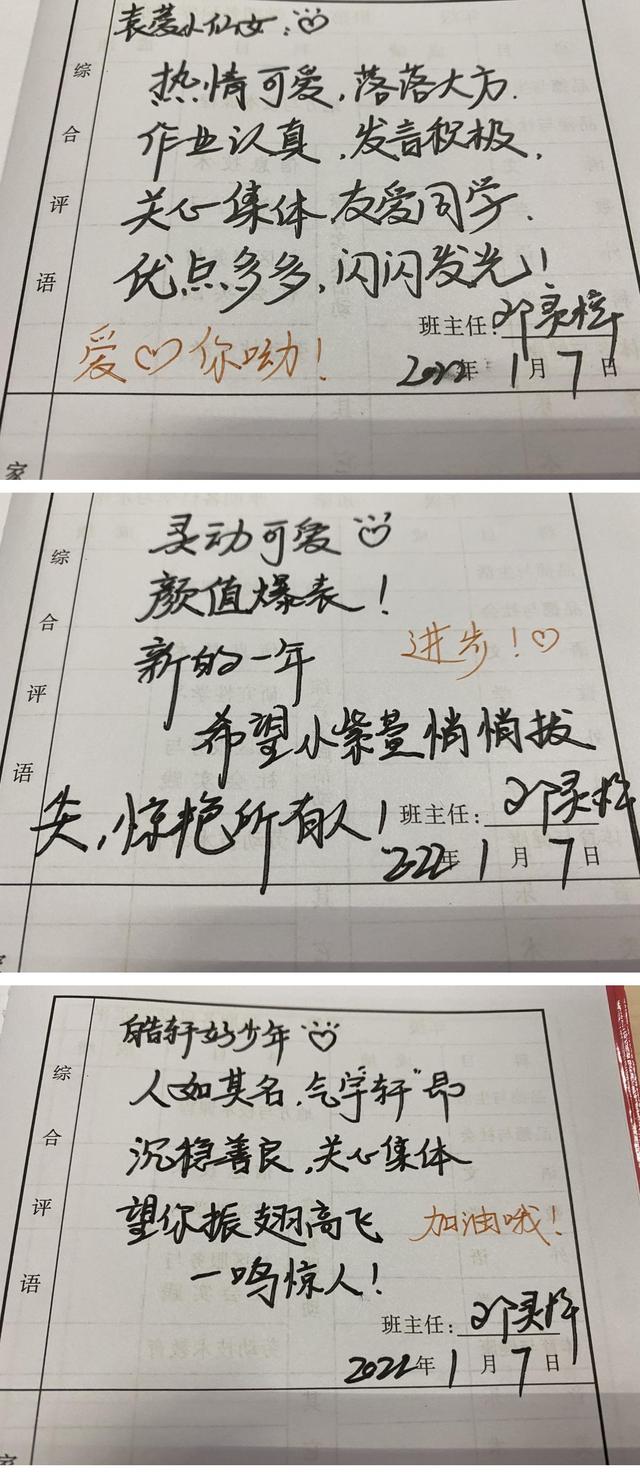 袁菱小仙女:
综合评语
热情可爱,落落大方.
作业认真,发言积极,
关心集体 友爱同学.
优点多多,闪闪发光!
班主任:邓灵梓
爱 你呦!
2022年1月7日
家
综合评语
灵动可爱
颜值爆表!
新的一年
进步!
希望小紫萱悄悄拔
尖,惊艳所有人!
班主任:邓灵梓
2022年1月7日
综合评语
皓轩好少年
人如其名,气宇“轩”昂
沉稳善良,关心集体
望你振翅高飞
加油哦!
一鸣惊人!
班主任:邓灵梓
2022年1月7日